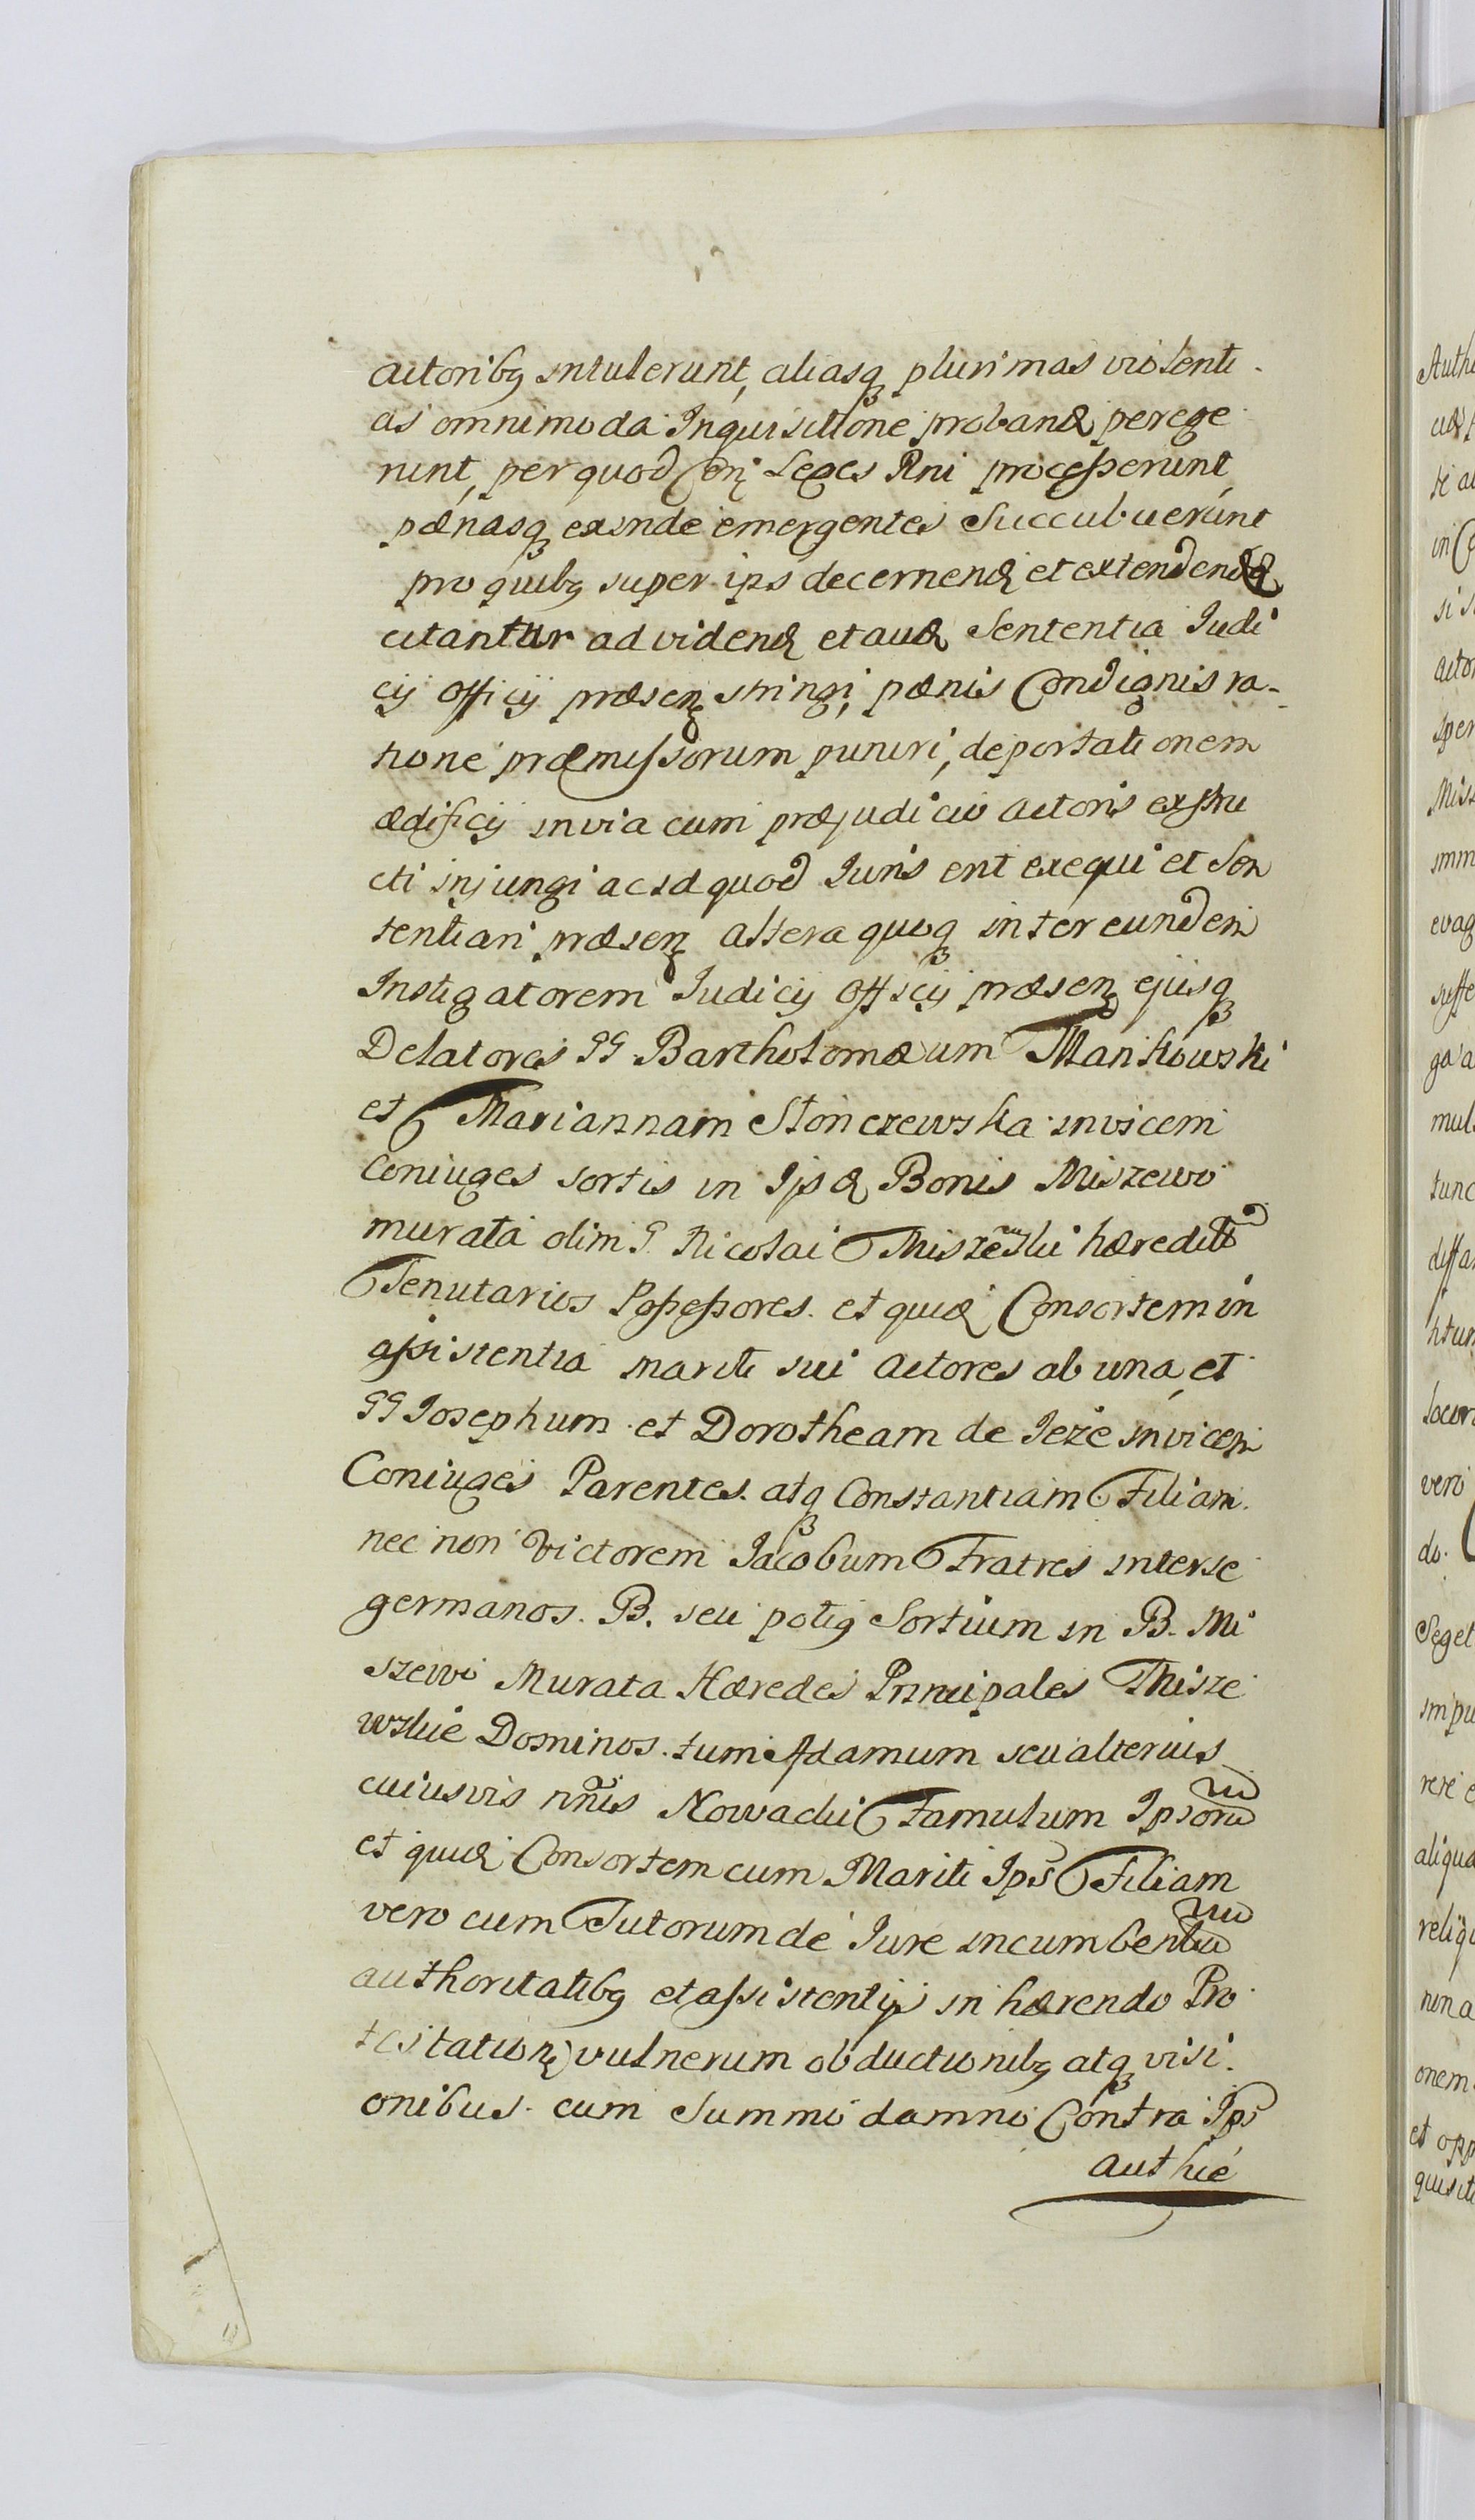 actoribq intulerunt, aliasq plurimas violenti-
as omnimoda Inquisitione proband perege
runt, per quod Con Leges Rni processerunt
pænasq exinde emergentes Succubuerunt
pro quibq super ips decernend et extendend
citantur ad vidend et aud Sententia Judi
cij Officij præsen stringi, pænis Condignis ra-
tione præmissorum puniri, deportationem
ædificij in via cum præjudicio actoris exstru
cti injungi ac id quod Juris erit exequi et Sen
tentiari præsen altera quoq inter eundem
Instigatorem Judicij Officij præsen ejusq
Delatores GG Bartholomæum Mankowski
et Mariannam Stonczewska invicem
Coniuges sortis in Ips Bonis Miszewo
murata olim G. Nicolai Miszewski hæredit
Tenutarios Possessores. et quid Consortem in
assistentia mariti sui actores ab una, et
GG Josephum et Dorotheam de Jeze invicem
Coniuges Parentes. atq Constantiam Filiam.
nec non Victorem Jacobum Fratres inter se
germanos. B. seu potiq Sortium in B. Mi
szewo Murata Hæredes Principales Misze
wskie Dominos. tum Adamum seu alterius
cuiusvis nnis Nowacki Famulum Ipsoru
et quid Consortem cum Mariti Ips Filiam
vero cum Tutorum de Jure incumbentiu
authoritatibq et assistentijs in hærendo Pro
testation vulnerum obductionibq atq visi-
onibus cum Summo damno Contra Ips
authie